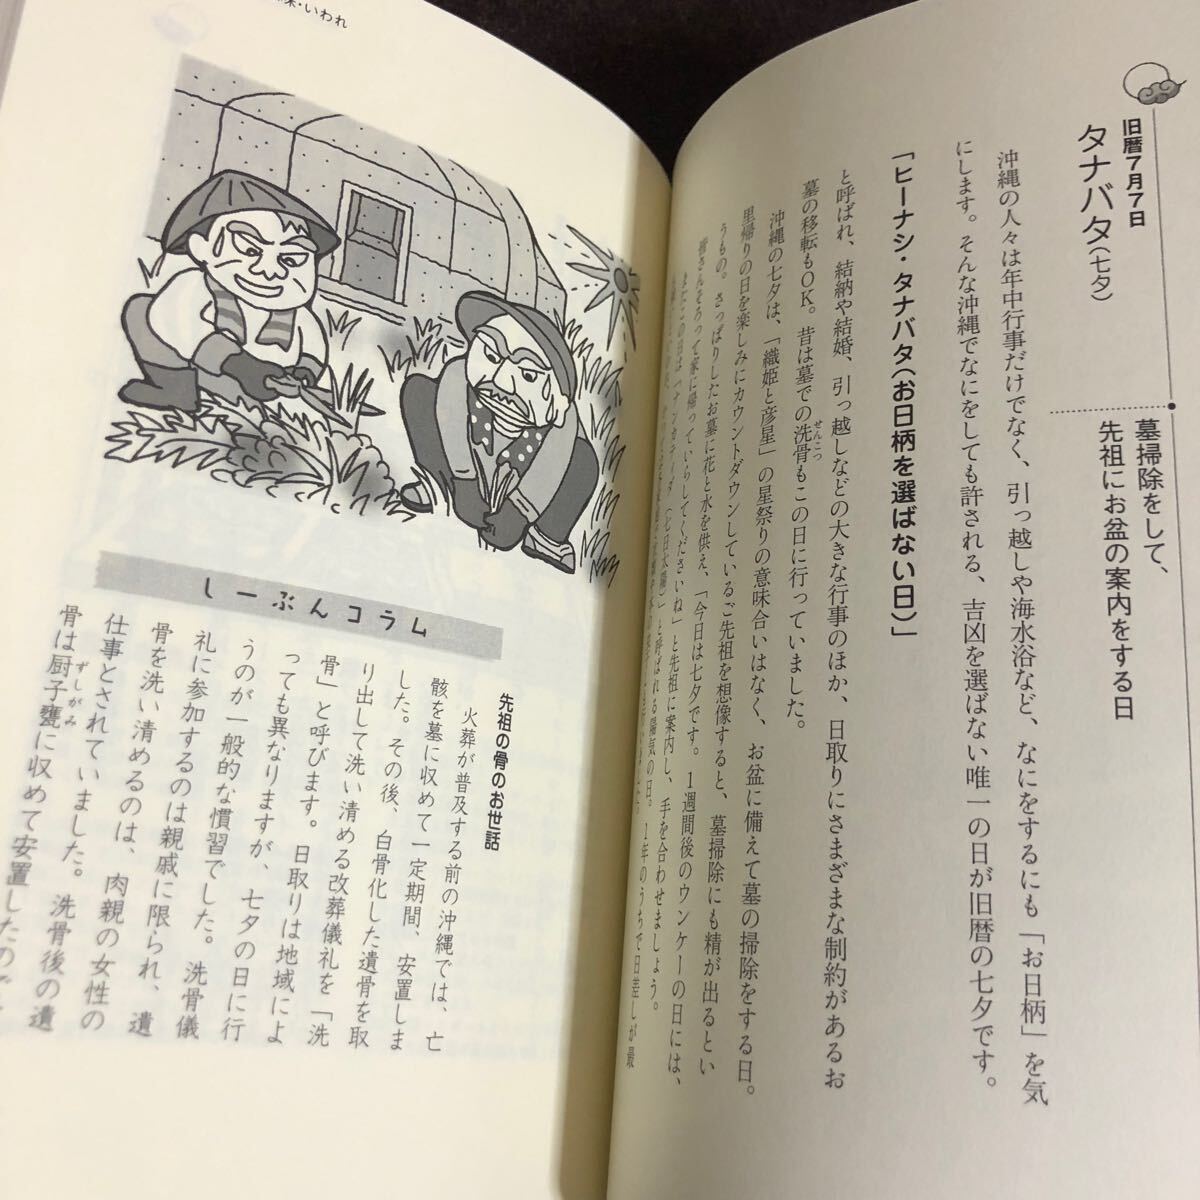 旧暦7月7日
タナバタ(七夕)
墓掃除をして、
先祖にお盆の案内をする日
沖縄の人々は年中行事だけでなく、引っ越しや海水浴など、なにをするにも「お日柄」を気
にします。そんな沖縄でなにをしても許される、吉凶を選ばない唯一の日が旧暦の七夕です。
「ヒーナシ・タナバタ(お日柄を選ばない日)」
と呼ばれ、結納や結婚、引っ越しなどの大きな行事のほか、日取りにさまざまな制約があるお
墓の移転もOK。昔は墓での洗骨もこの日に行っていました。
せんこつ
沖縄の七夕は、「織姫と彦星」の星祭りの意味合いはなく、お盆に備えて墓の掃除をする日。
里帰りの日を楽しみにカウントダウンしているご先祖を想像すると、墓掃除にも精が出るとい
うもの。さっぱりしたお墓に花と水を供え、「今日は七夕です。1週間後のウンケーの日には、
皆さんそろって家に帰っていらしてくださいね」と先祖に案内し、手を合わせましょう。
またこの日は「ナンカティダ(七日太陽)」と呼ばれる陽気の日。1年のうちで日差しが最
いわれ
しーぶんコラム
先祖の骨のお世話
火葬が普及する前の沖縄では、亡
骸を墓に収めて一定期間、安置しま
した。その後、白骨化した遺骨を取
り出して洗い清める改葬儀礼を「洗
骨」と呼びます。日取りは地域によ
っても異なりますが、七夕の日に行
うのが一般的な慣習でした。洗骨儀
礼に参加するのは親戚に限られ、遺
骨を洗い清めるのは、肉親の女性の
仕事とされていました。洗骨後の遺
骨は厨子甕に収めて安置したので
ずしがみ